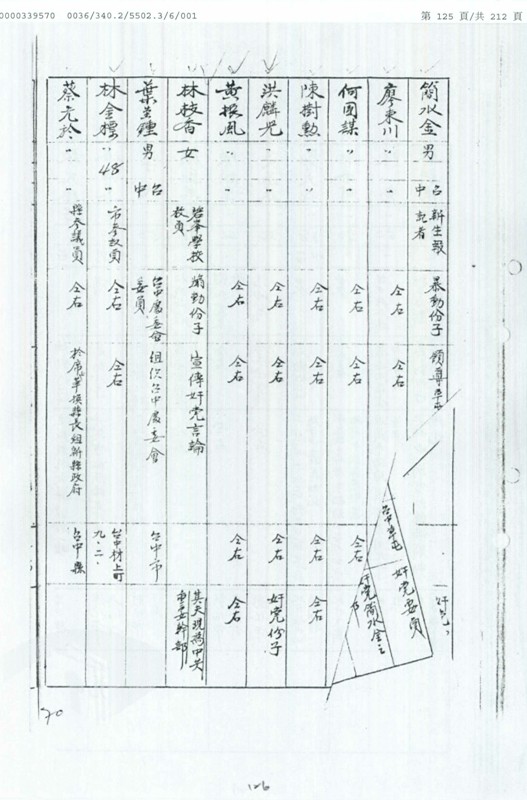 0000339570 0036/340.2/5502.3/6/001 第 125 頁/共 212 頁
簡水金 男 台中 新生報記者 暴動份子 領導草屯
奸党
廖東川 〃 〃 仝右 仝右
台中草屯 奸党要員
何國謀 〃 〃 仝右 仝右 仝右
奸党簡水金之
陳樹勲 〃 〃 仝右 仝右 仝右
洪麟兜 〃 〃 仝右 仝右 仝右 奸党份子
黄撰風 〃 〃 仝右 仝右 仝右 仝右
林枝香 女 學校教員 煽動份子 宣傳奸党言論 其夫現為中共市委幹部
葉 男 台中 台中處委會委員 組织台中處委會 台中市
林金標 〃 48 〃 市參政員 仝右 仝右 台中村上町九.二.
蔡 〃 〃 縣參議員 仝右 縣長組新縣政府 台中縣
70
126